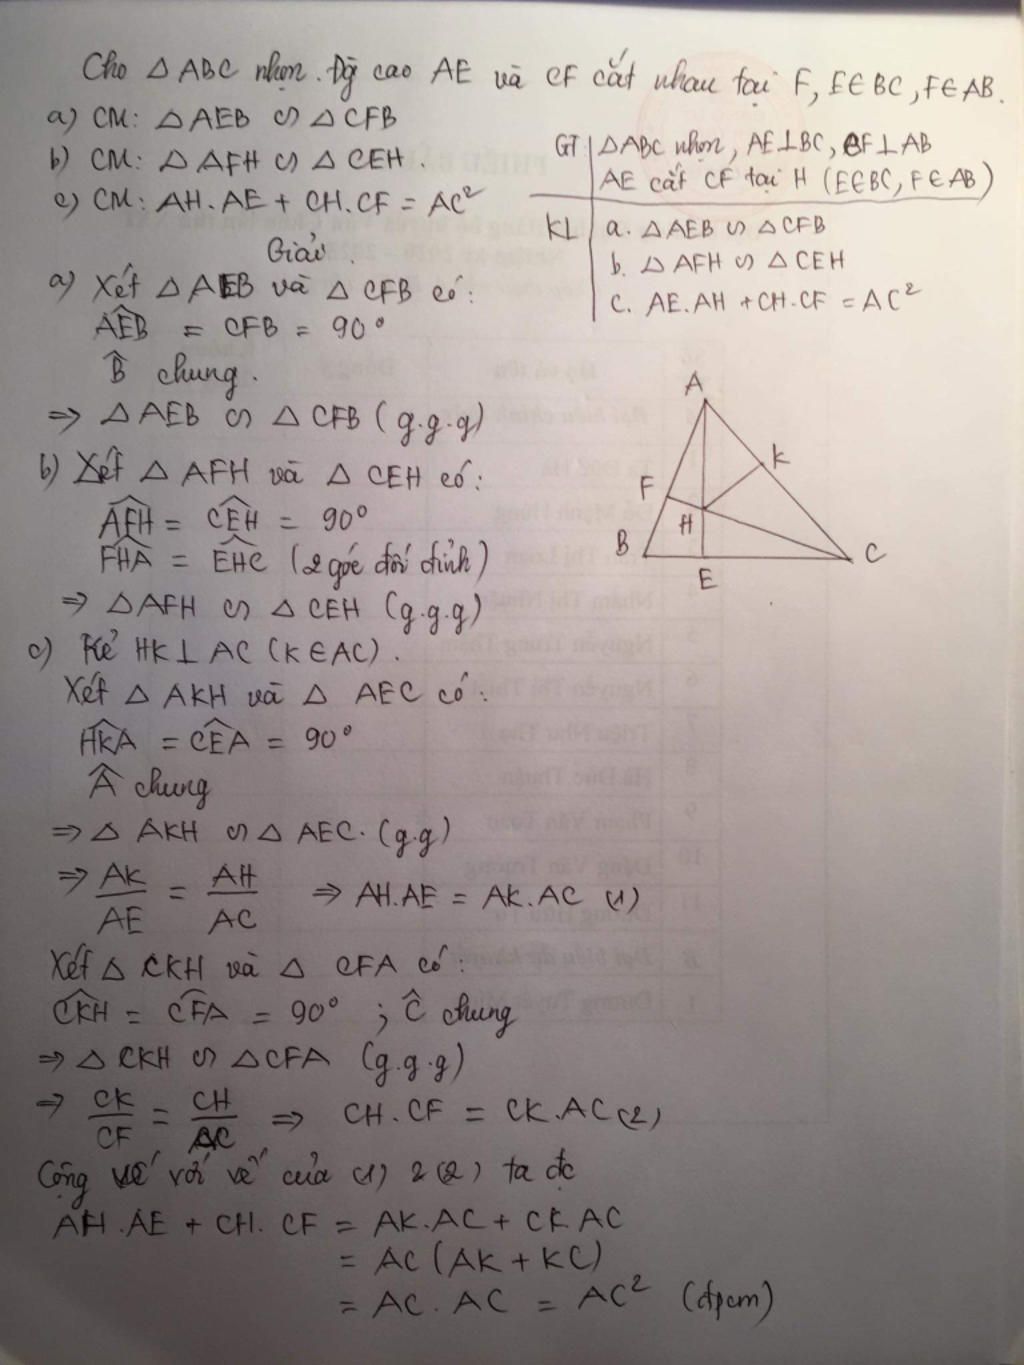 Cho △ ABC nhọn. Đg cao AE và CF cắt nhau tại F, E∈BC, F∈AB.
a) CM: △ AEB ∽ △ CFB
b) CM: △ AFH ∽ △ CEH.
c) CM: AH.AE + CH.CF = AC²
GT △ABC nhọn, AE⊥BC, CF⊥AB
AE cắt CF tại H (E∈BC, F∈AB)
KL a. △AEB ∽ △CFB
b. △ AFH ∽ △CEH
c. AE.AH + CH.CF = AC²
Giải.
a) Xét △ AEB và △ CFB có:
AEB̂ = CFB = 90°
B̂ chung.
⇒ △ AEB ∽ △ CFB (g.g.g)
b) Xét △ AFH và △ CEH có:
AFĤ = CEĤ = 90°
FHÂ = EHĈ (2 góc đối đỉnh)
⇒ △AFH ∽ △CEH (g.g.g)
c) Kẻ HK⊥AC (K∈AC).
Xét △ AKH và △ AEC có:
HKÂ = CEÂ = 90°
Â chung
⇒ △ AKH ∽ △ AEC. (g.g)
⇒ AK/AE = AH/AC ⇒ AH.AE = AK.AC (1)
Xét △ CKH và △ CFA có:
CKĤ = CFÂ = 90° ; Ĉ chung
⇒ △ CKH ∽ △CFA (g.g.g)
⇒ CK/CF = CH/AC ⇒ CH.CF = CK.AC (2)
Cộng vế với vế của (1) 2 (2) ta đc
AH.AE + CH.CF = AK.AC + CK AC
= AC (AK + KC)
= AC.AC = AC² (đpcm)
A
K
F
H
B
E
C